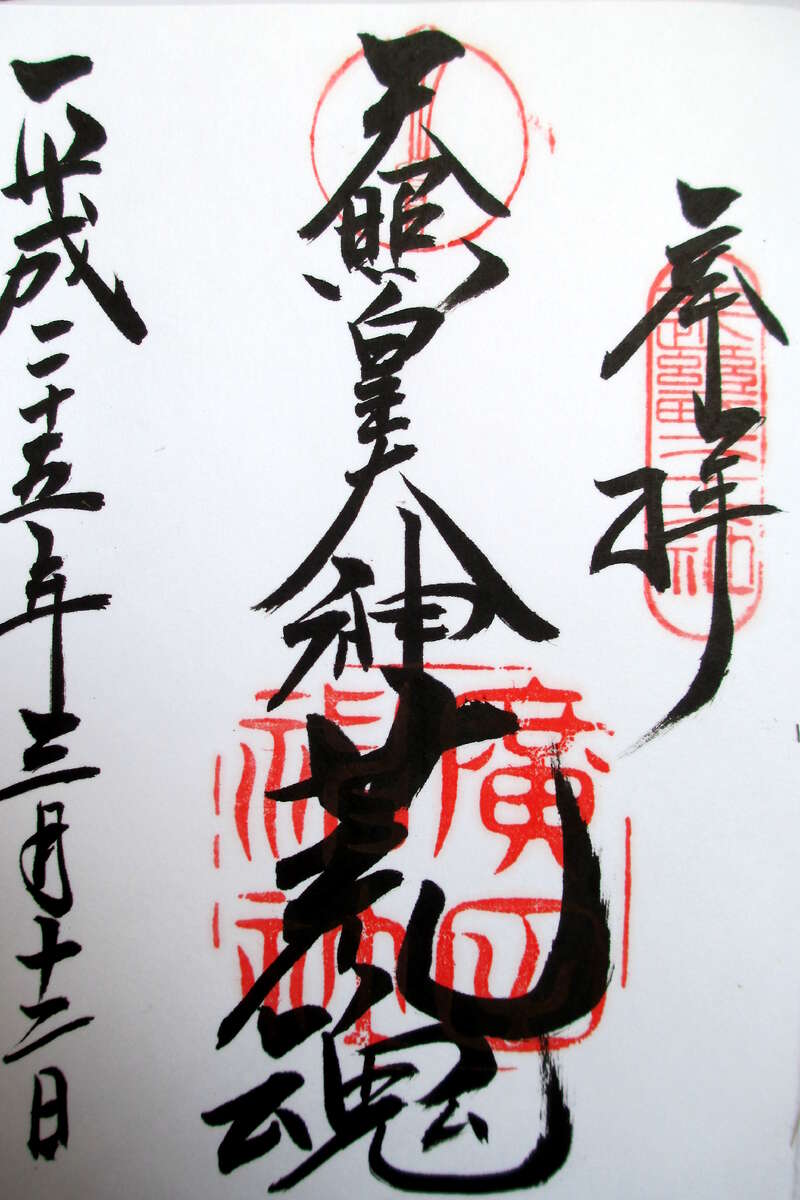 奉拝
天照皇大神荒魂
廣田
神社
平成二十五年三月十二日